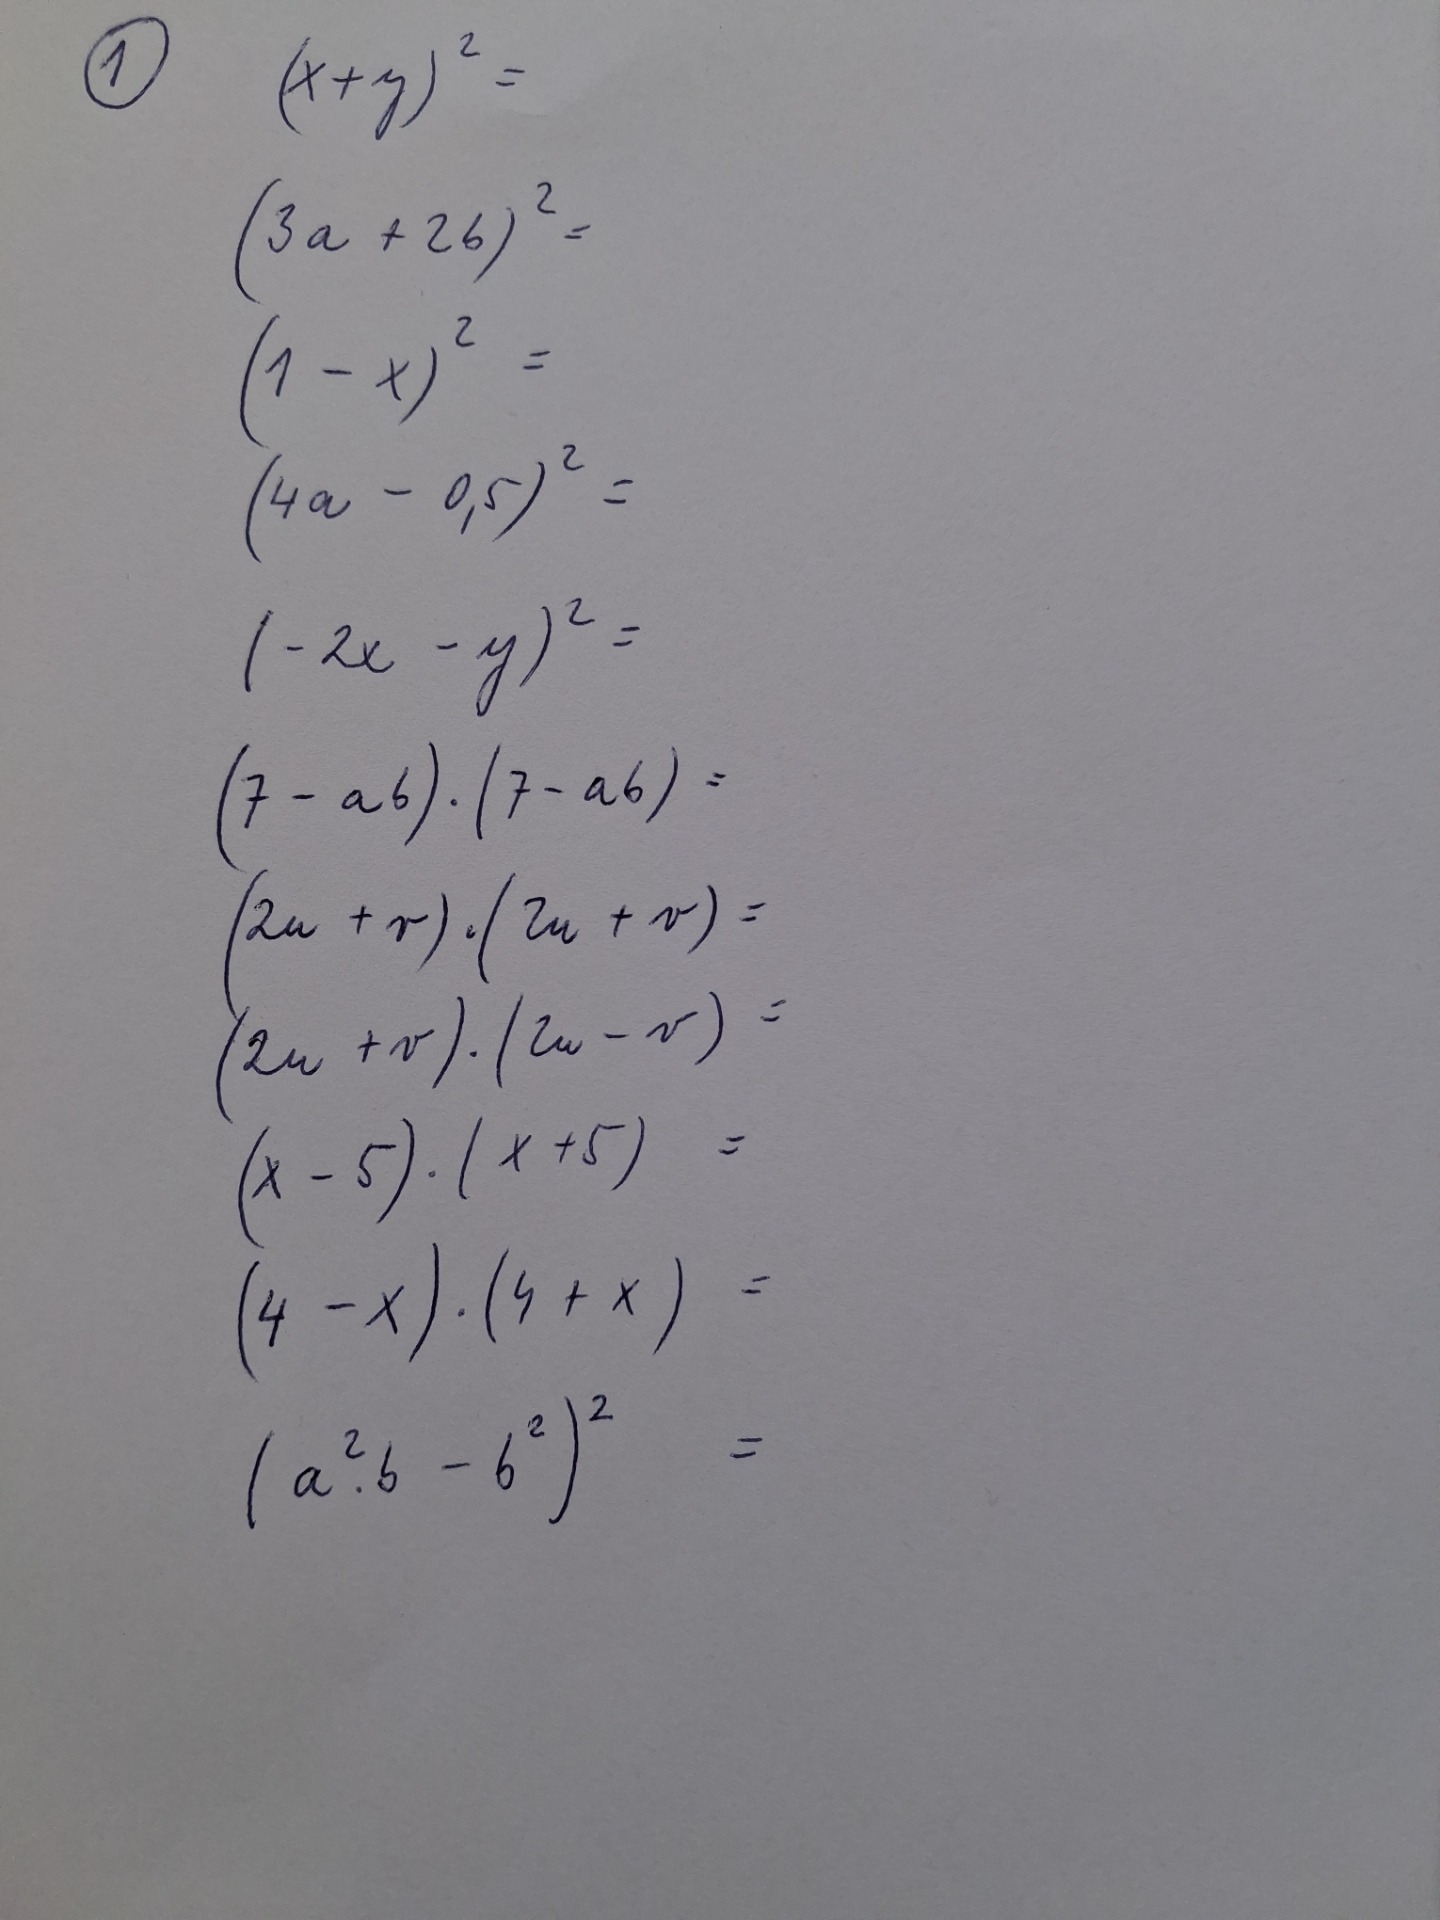 ① (x+y)² =
(3a + 2b)² =
(1 - x)² =
(4a - 0,5)² =
(-2x - y)² =
(7 - ab).(7 - ab) =
(2u + v).(2u + v) =
(2u + v).(2u - v) =
(x - 5).(x + 5) =
(4 - x).(4 + x) =
(a².b - b²)² =